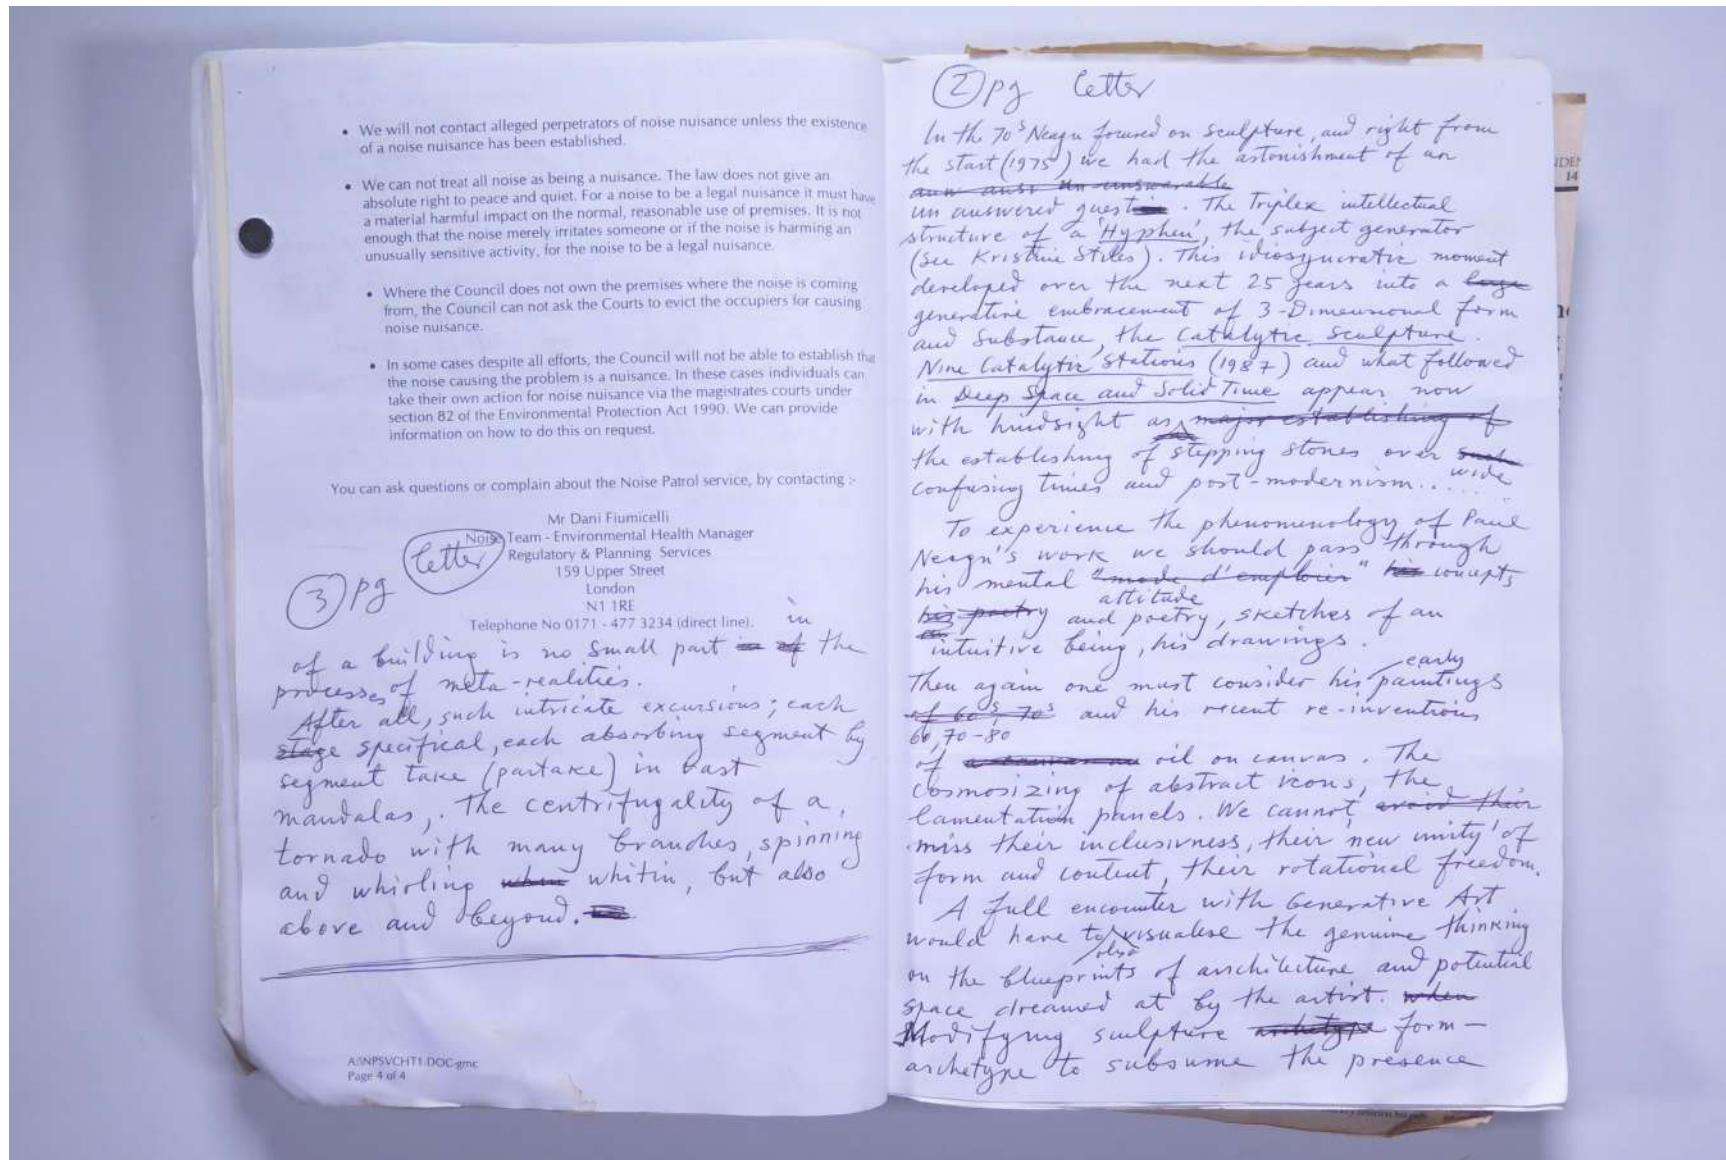 • We will not contact alleged perpetrators of noise nuisance unless the existence
of a noise nuisance has been established.
• We can not treat all noise as being a nuisance. The law does not give an
absolute right to peace and quiet. For a noise to be a legal nuisance it must have
a material harmful impact on the normal, reasonable use of premises. It is not
enough that the noise merely irritates someone or if the noise is harming an
unusually sensitive activity, for the noise to be a legal nuisance.
• Where the Council does not own the premises where the noise is coming
from, the Council can not ask the Courts to evict the occupiers for causing
noise nuisance.
• In some cases despite all efforts, the Council will not be able to establish that
the noise causing the problem is a nuisance. In these cases individuals can
take their own action for noise nuisance via the magistrates courts under
section 82 of the Environmental Protection Act 1990. We can provide
information on how to do this on request.
You can ask questions or complain about the Noise Patrol service, by contacting :-
Mr Dani Fiumicelli
Noise Team - Environmental Health Manager
Regulatory & Planning Services
159 Upper Street
London
N1 1RE
Telephone No 0171 - 477 3234 (direct line).
3 pg letter
in
of a building is no small part of the
processes of meta-realities.
After all, such intricate excursions; each
stage specifical, each absorbing segment by
segment take (partake) in vast
mandalas,. The centrifugality of a
tornado with many branches, spinning
and whirling when whitin, but also
above and beyond.
A:\NPSVCHT1.DOC-gmc
Page 4 of 4
2 pg letter
In the 70s Neagu focused on sculpture, and right from
the start (1975) we had the astonishment of an
unanswered quest. The Triplex intellectual
structure of a 'Hyphen', the subject generator
(see Kristine Stiles). This idiosyncratic moment
developed over the next 25 years into a large
generative embracement of 3-Dimensional form
and substance, the catalytic sculpture.
Nine Catalytic Stations (1987) and what followed
in Deep Space and Solid Time appear now
with hindsight as major establishing of
the establishing of stepping stones over such
confusing times and post-modernism..... wide
To experience the phenomenology of Paul
Neagu's work we should pass through
his mental "mode d'emploier" his concepts
attitude
his poetry and poetry, sketches of an
intuitive being, his drawings.
early
Then again one must consider his paintings
of 60s, 70s and his recent re-inventions
60, 70-80
of oil on canvas. The
cosmosizing of abstract icons, the
lamentation panels. We cannot avoid their
miss their inclusivness, their 'new unity' of
form and content, their rotational freedom.
A full encounter with Generative Art
would have to visualise the genuine thinking
also
on the blueprints of architecture and potential
space dreamed at by the artist. when
Modifying sculpture archetype form –
archetype to subsume the presence
14